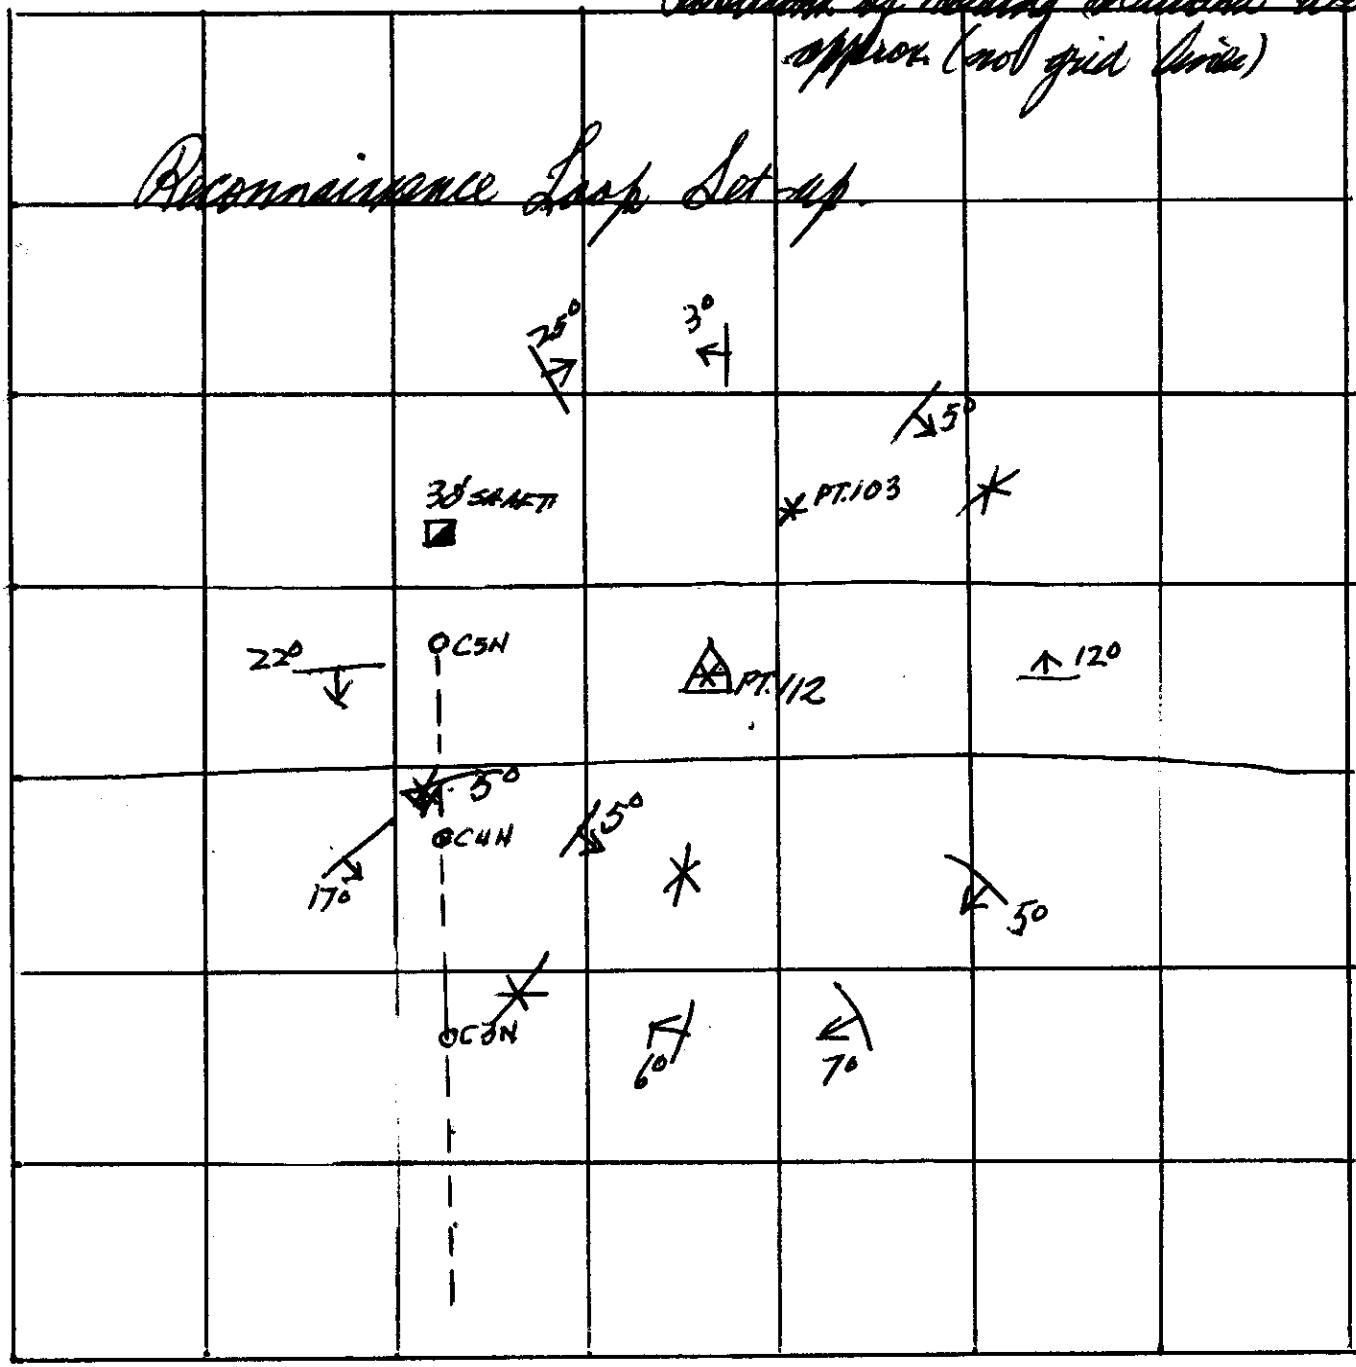 of
approx. (no grid lines)
Reconnaissance Loop Set-up.
25°
3°
5°
30' SHAFT
PT.103
22°
C5N
PT.112
12°
5°
5°
C4N
17°
5°
C3N
6°
7°